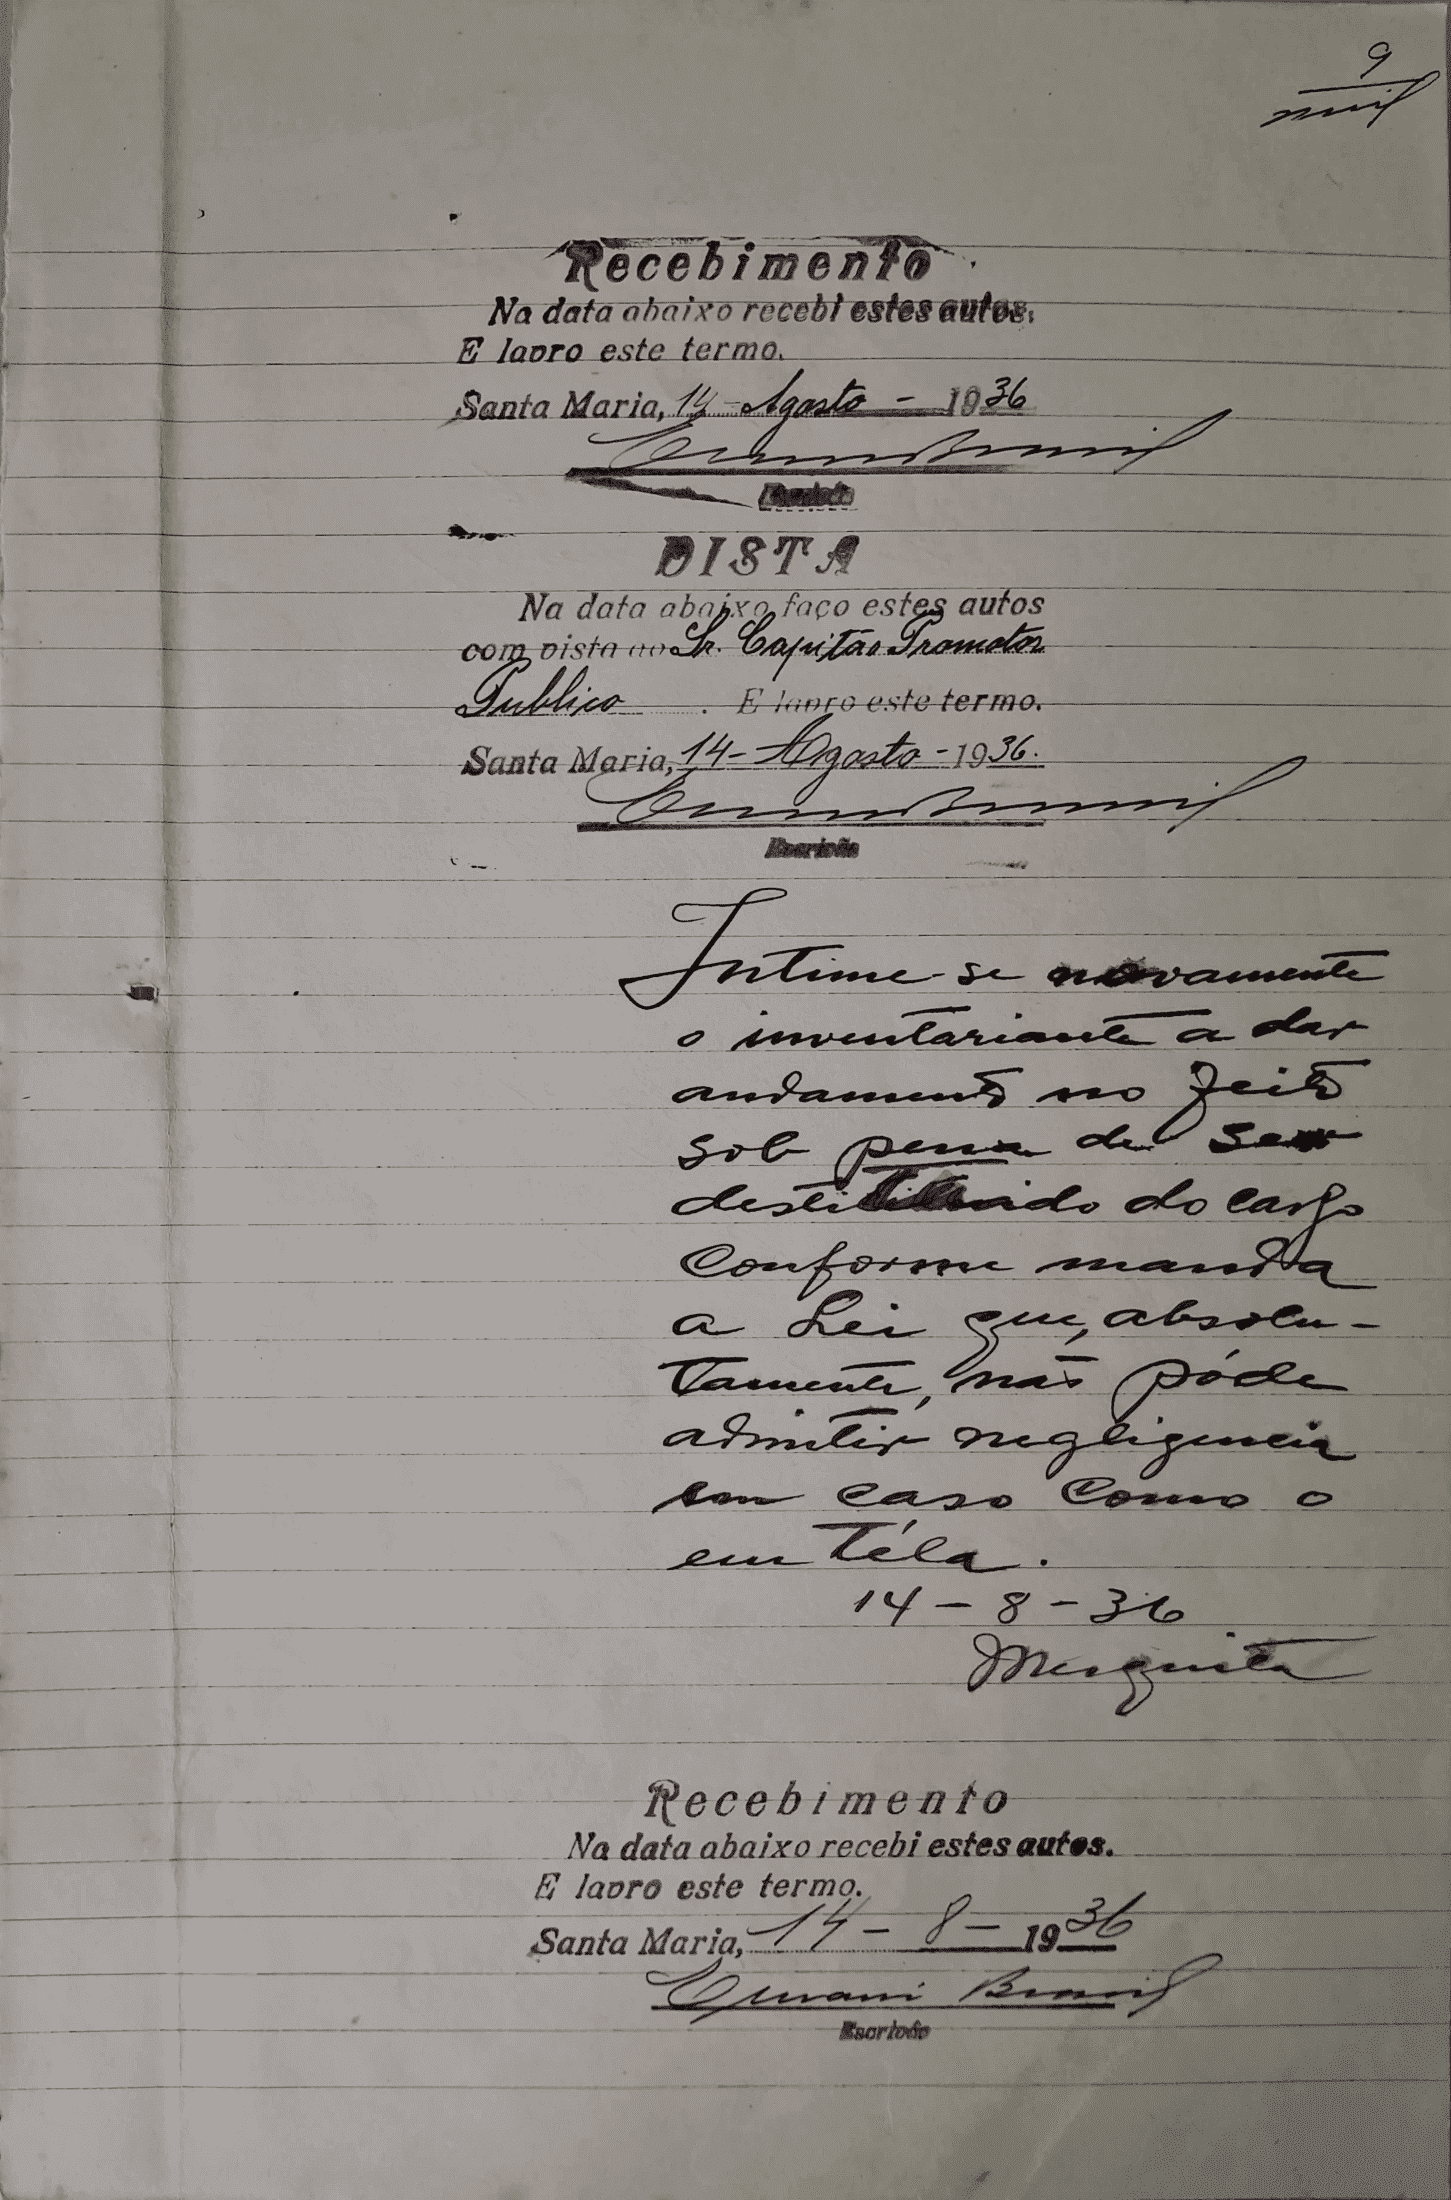 9
Recebimento
Na data abaixo recebi estes autos.
E lavro este termo.
Santa Maria, 14 - Agosto - 1936
Escrivão
VISTA
Na data abaixo faço estes autos
com vista ao Sr. Capitão Promotor
Publico . E lavro este termo.
Santa Maria, 14 - Agosto - 1936.
Escrivão
Intime-se novamente
o inventariante a dar
andamento no feito
sob pena de ser
destituido do cargo
conforme manda
a Lei que, absolu-
tamente, não póde
admitir negligencia
em caso como o
em téla.
14 - 8 - 36
Mesquita
Recebimento
Na data abaixo recebi estes autos.
E lavro este termo.
Santa Maria, 14 - 8 - 1936
Ernani Brasil
Escrivão